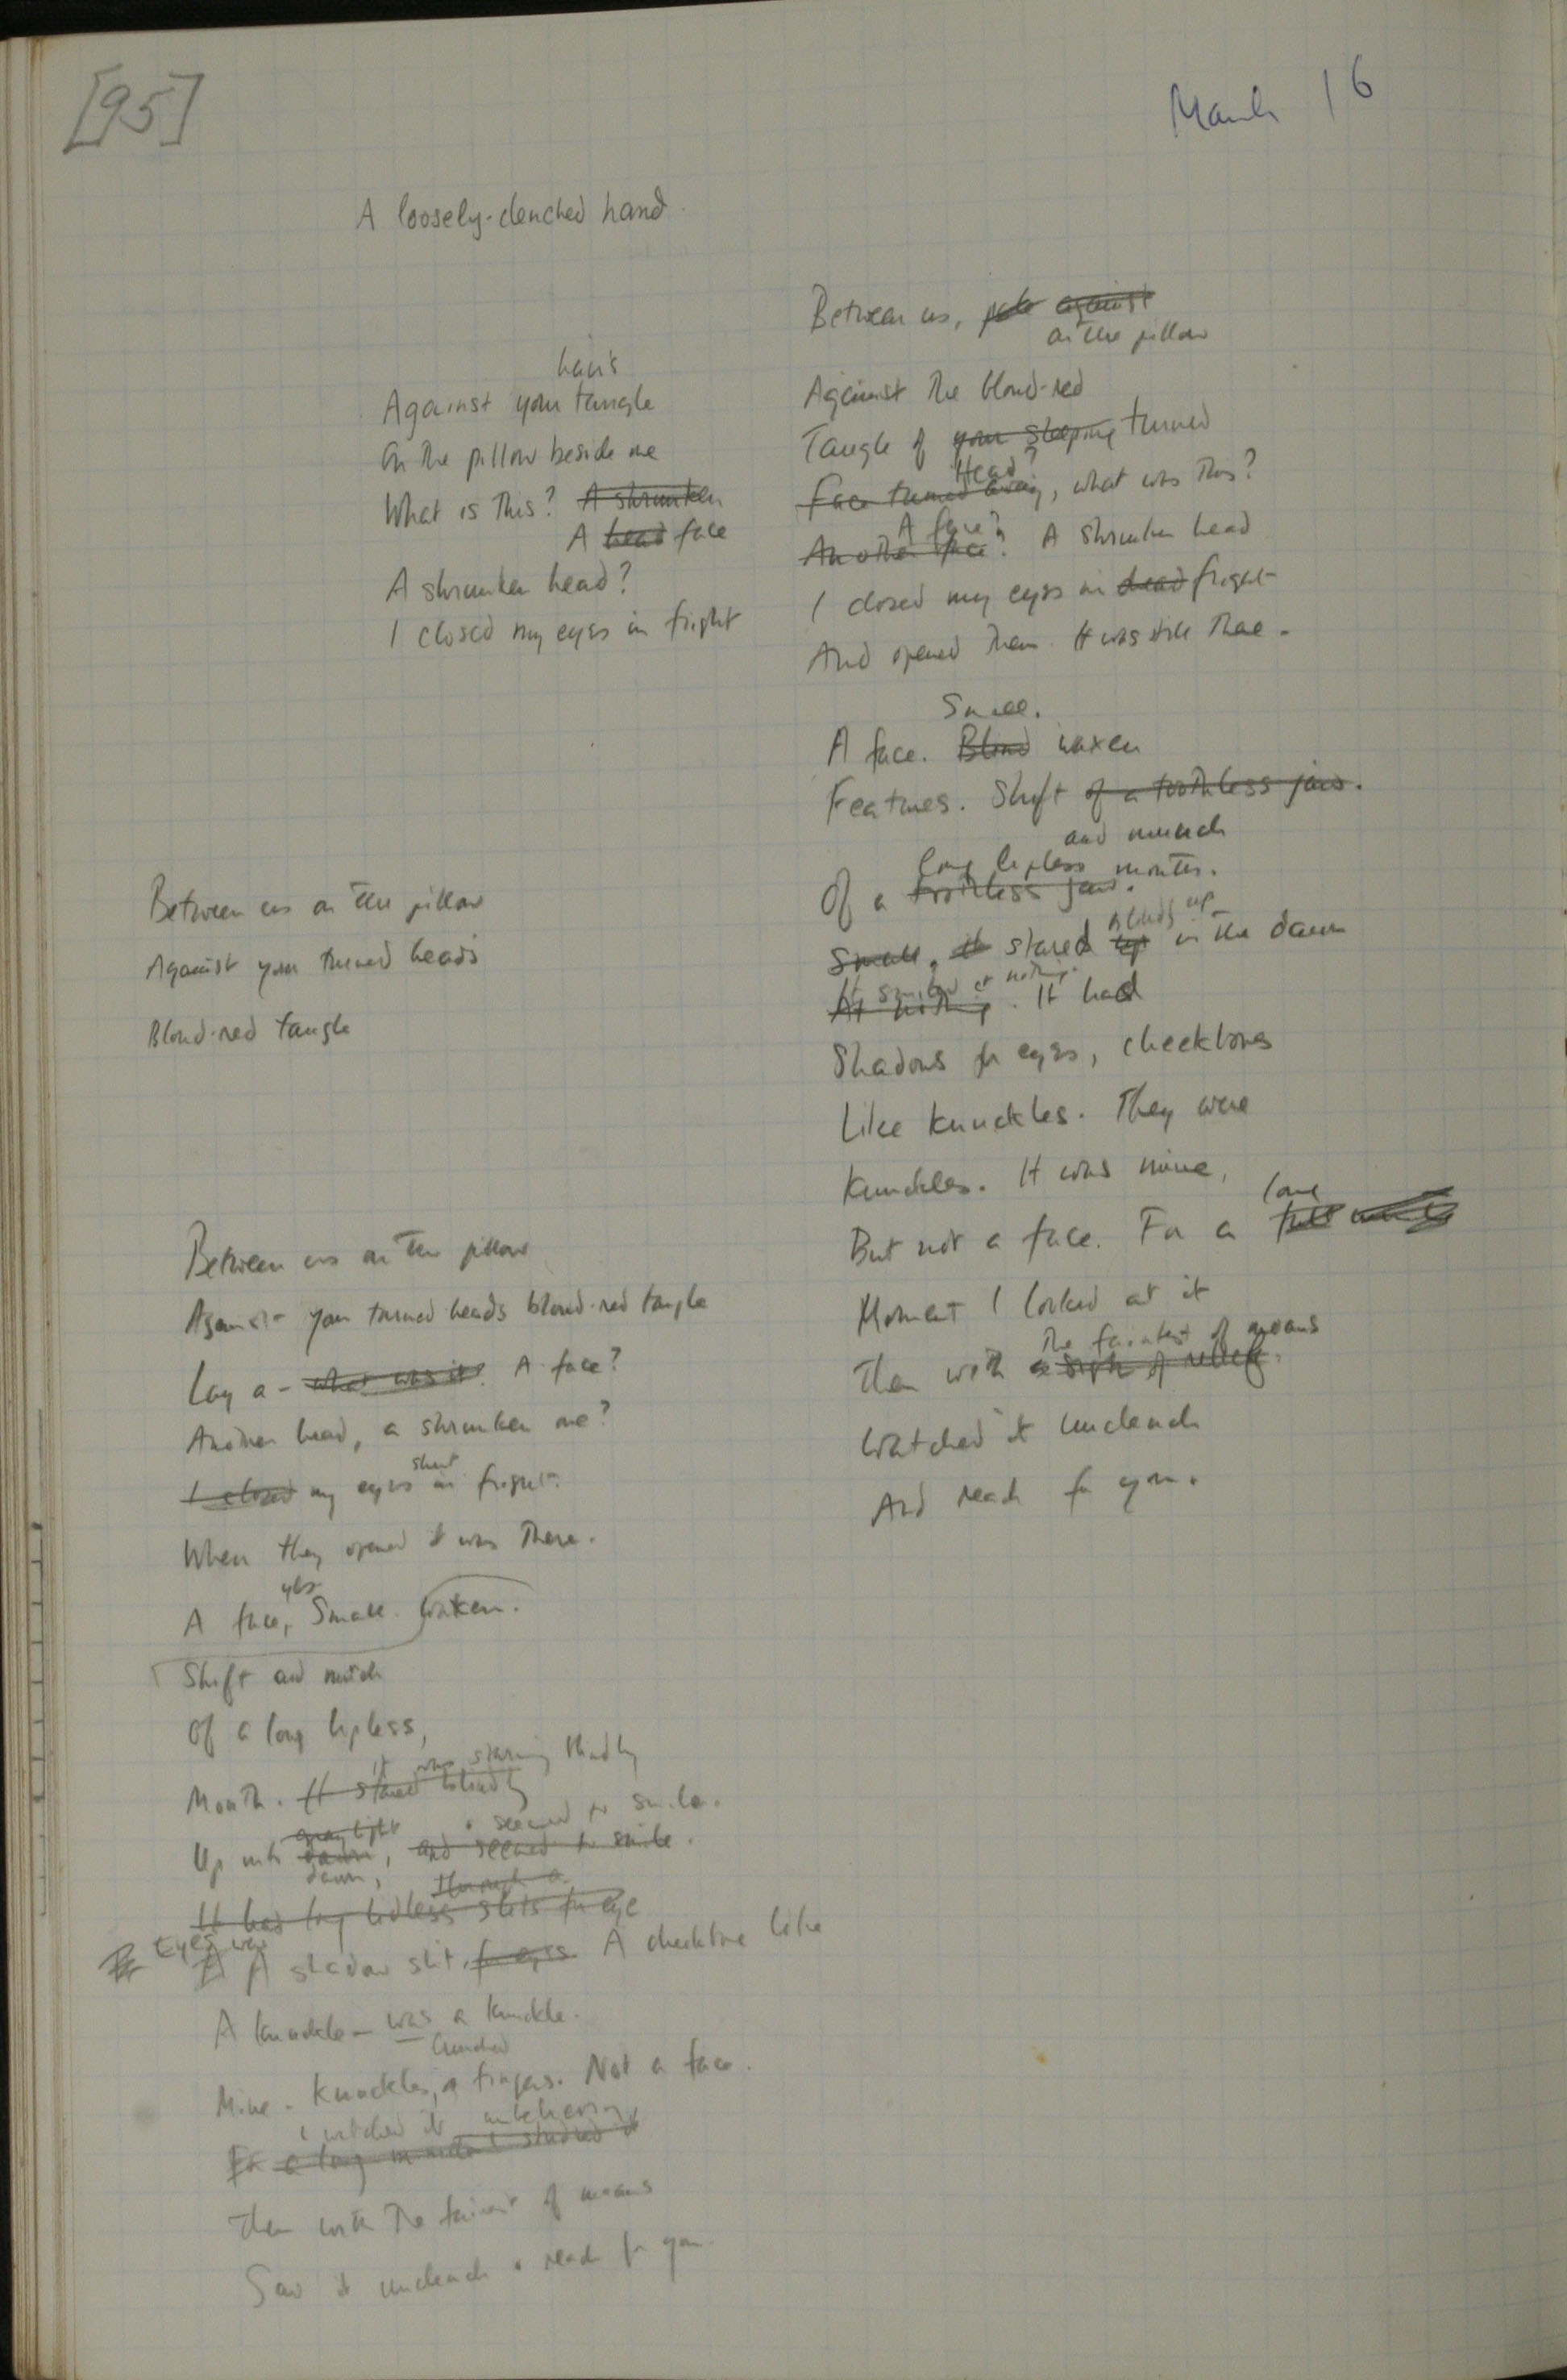 [95]
March 16
A loosely-clenched hand
hair's
Against your tangle
On the pillow beside me
What is this? A shrunken
A head face
A shrunken head?
I closed my eyes in fright
Between us on the pillow
Against your turned head's
Blond-red tangle
Between us on the pillow
Against your turned head's blond-red tangle
Lay a - what was it? A face?
Another head, a shrunken one?
shut
I closed my eyes in fright.
When they opened it was there.
yes
A face, Small. Waxen.
Shift and munch
Of a long lipless,
it was staring blindly
Mouth. It stared blindly
gray light seemed to smile.
Up into dawn, and seemed to smile.
dawn, through a
It had long lidless slits for eye
Eyes were
A shadow slit, for eyes. A cheekbone like
A knuckle - was a knuckle.
Clenched
Mine. Knuckles, fingers. Not a face.
I watched it unbelieving
For a long moment I studied it
Then with the faintest of moans
Saw it unclench & reach for you.
Between us, pale against
on the pillow
Against the blond-red
Tangle of your sleeping turned
Head
Face turned away, what was this?
A face?
Another face? A shrunken head
I closed my eyes in dead fright
And opened them. It was still there.
Small.
A face. Blond waxen
Features. Shift of a toothless jaw.
and munch
long lipless mouth.
Of a toothless jaw.
blindly up
Small, it stared up in the dawn
It smiled at nothing.
At nothing. It had
Shadows for eyes, cheekbones
Like knuckles. They were
Knuckles. It was mine,
long
But not a face. For a full
Moment I looked at it
The faintest of moans
Then with a sigh of relief.
Watched it unclench
And reach for you.